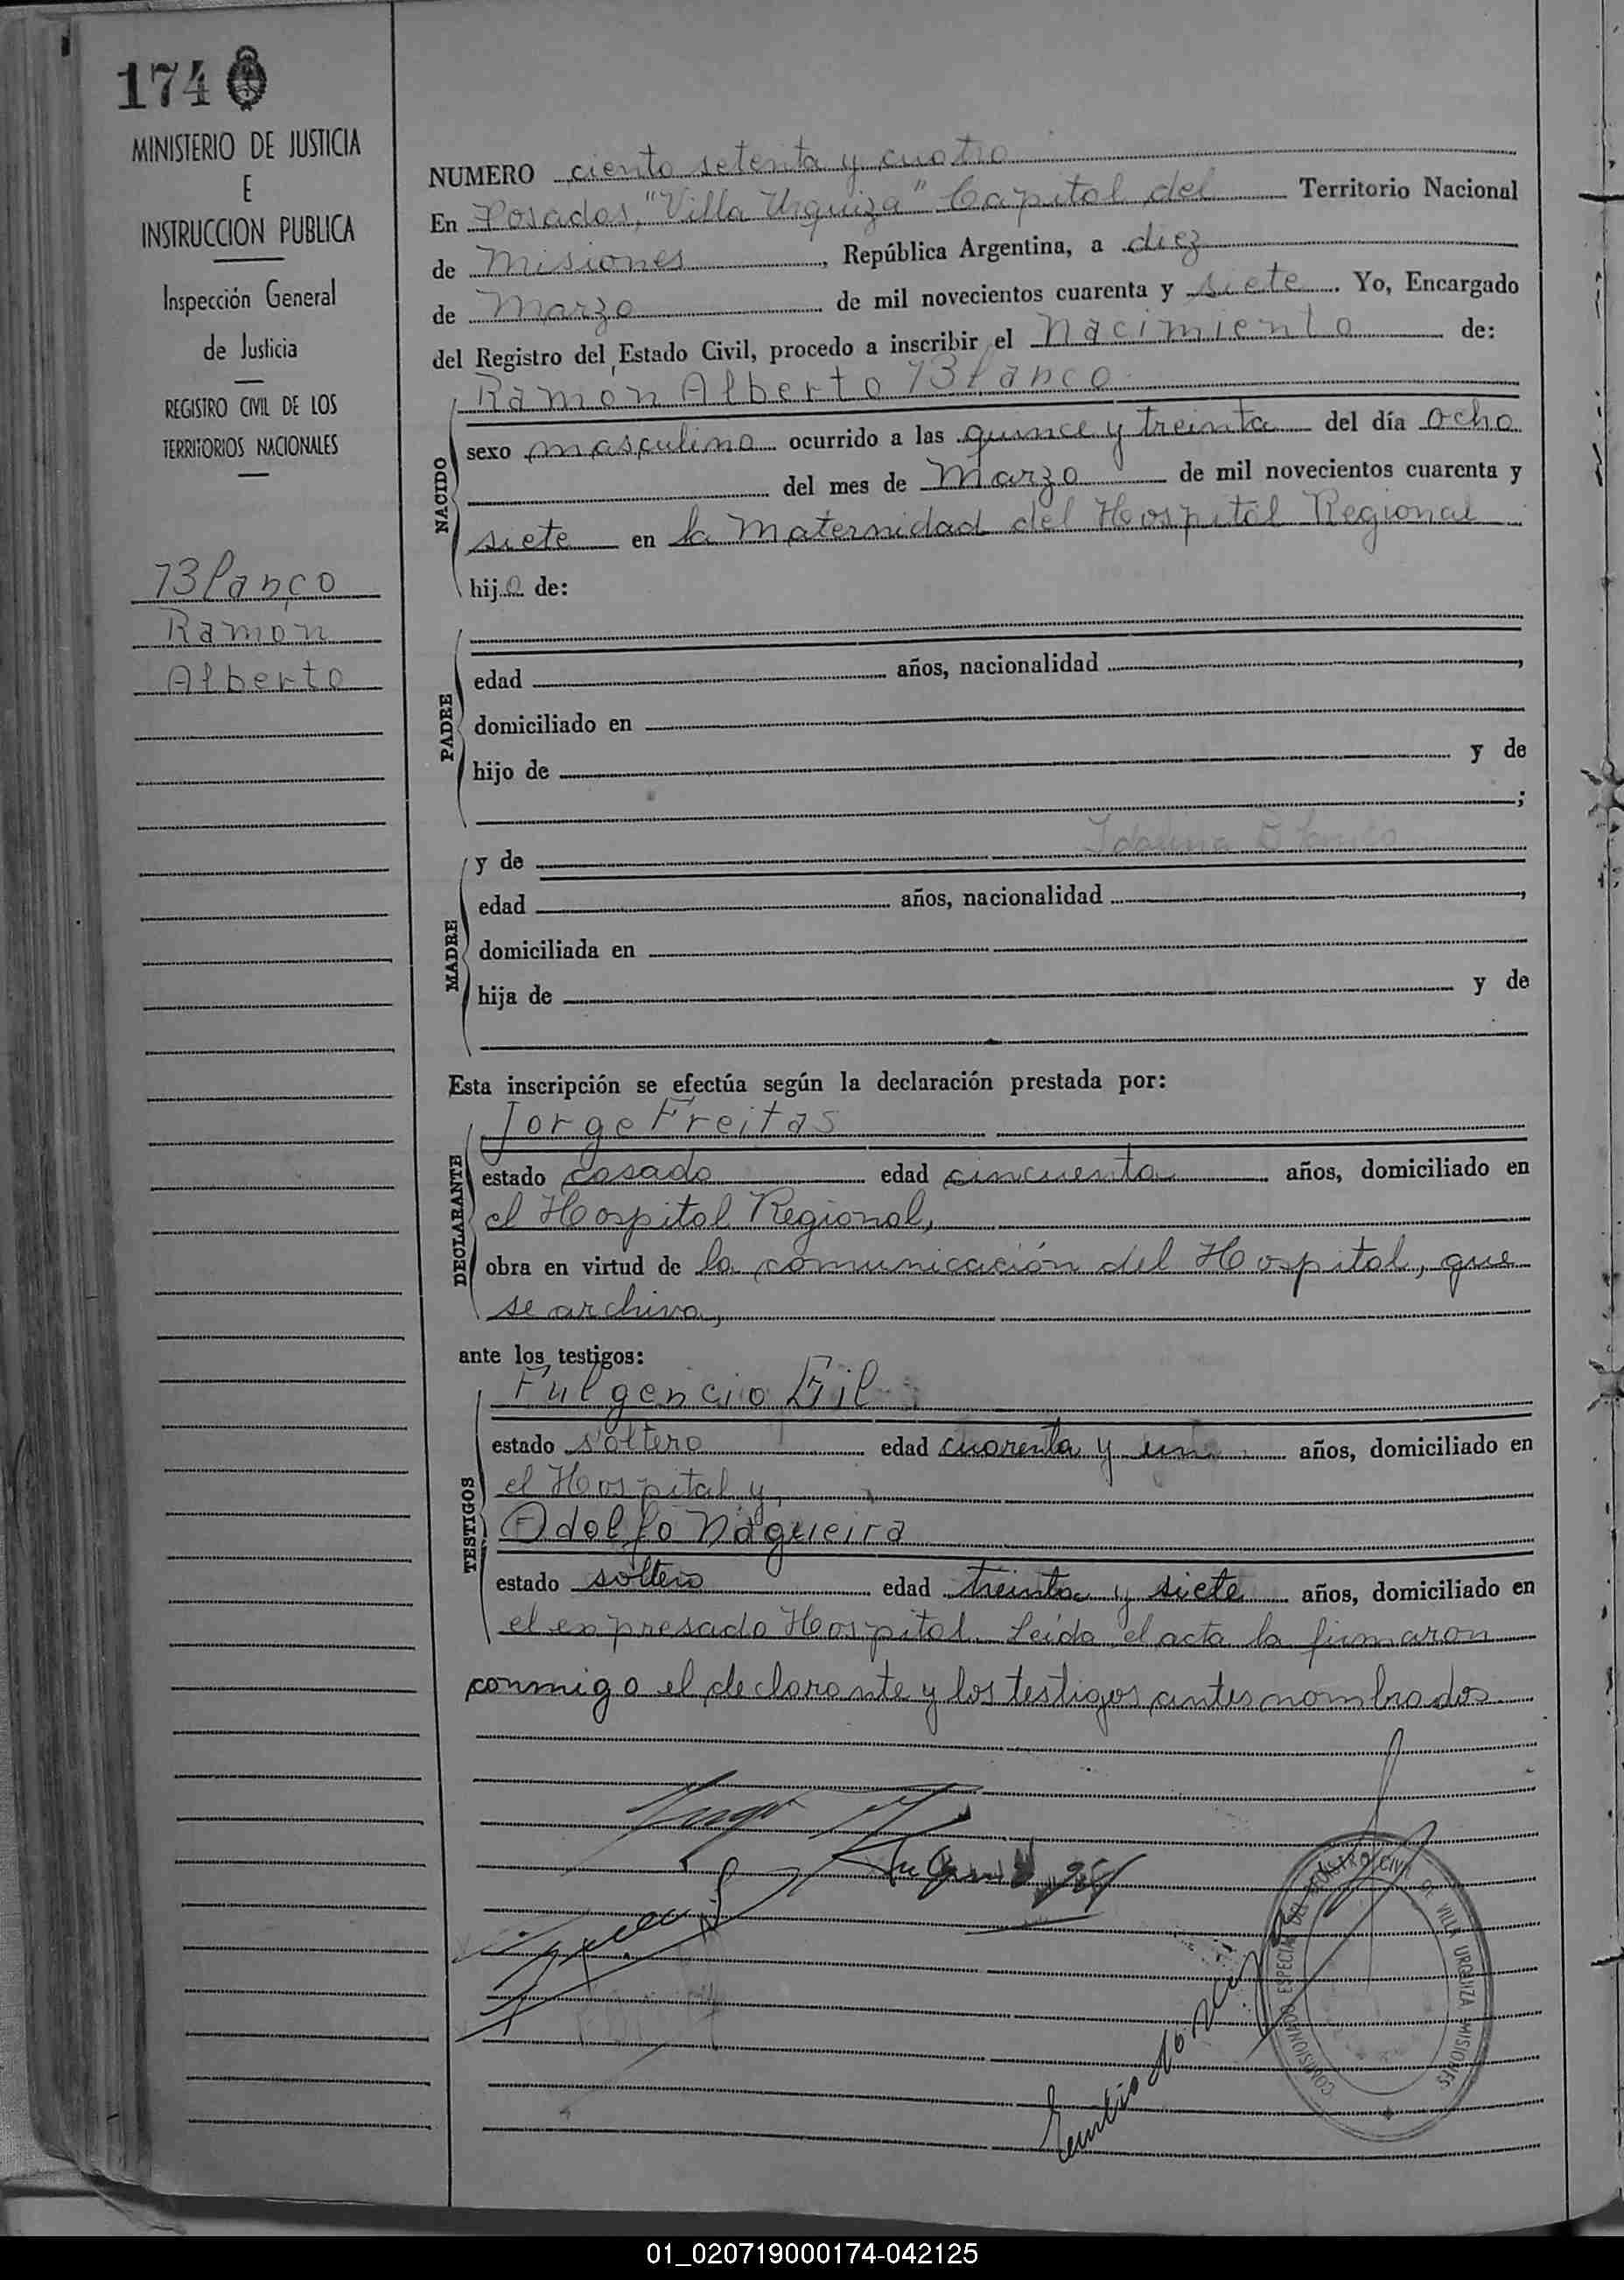 174
MINISTERIO DE JUSTICIA
E
INSTRUCCION PUBLICA
Inspección General
de Justicia
REGISTRO CIVIL DE LOS
TERRITORIOS NACIONALES
Blanco
Ramon
Alberto
NUMERO ciento setenta y cuatro
En Posadas, "Villa Urquiza" Capital del Territorio Nacional
de Misiones, República Argentina, a diez
de Marzo de mil novecientos cuarenta y siete. Yo, Encargado
del Registro del Estado Civil, procedo a inscribir el Nacimiento de:
Ramon Alberto Blanco
NACIDO
sexo masculino ocurrido a las quince y treinta del día ocho
del mes de Marzo de mil novecientos cuarenta y
siete en la Maternidad del Hospital Regional
hijo de:
PADRE
edad años, nacionalidad ,
domiciliado en
hijo de y de
;
MADRE
y de
edad años, nacionalidad ,
domiciliada en
hija de y de
Esta inscripción se efectúa según la declaración prestada por:
DECLARANTE
Jorge Freitas
estado casado edad cincuenta años, domiciliado en
el Hospital Regional,
obra en virtud de la comunicación del Hospital, que
se archiva,
ante los testigos:
TESTIGOS
Fulgencio Gil
estado soltero edad cuarenta y un años, domiciliado en
el Hospital y,
Adolfo Nagueira
estado soltero edad treinta y siete años, domiciliado en
el expresado Hospital. Leida el acta la firmaron
conmigo el declarante y los testigos antes nombrados
COMISIONADO ESPECIAL DEL REGISTRO CIVIL DE VILLA URQUIZA MISIONES
01_020719000174-042125